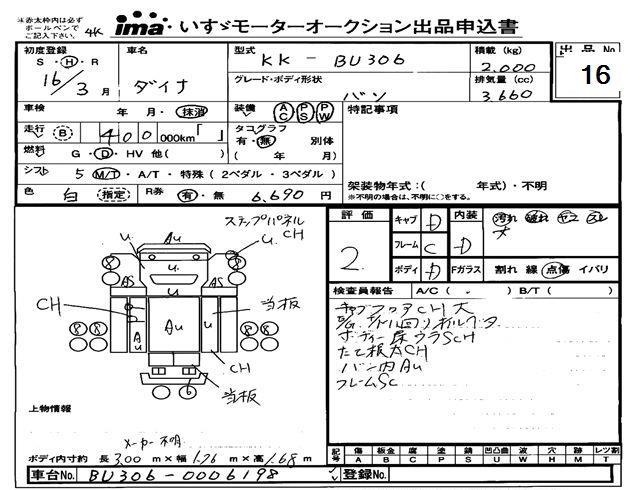 *赤太枠内は必ず
ボールペンで
ご記入下さい。
4K
ima いすゞモーターオークション出品申込書
初度登録
S・H・R
16/3月
車名
ダイナ
型式
KK-BU306
グレード・ボディ形状
バン
積載(kg)
2,000
排気量(cc)
3,660
出品No
16
車検 年 月・抹消
装備 AC PS PW
特記事項
走行 B 400 000km「 」
タコグラフ
有・無 別体
( 年 月)
燃料 G・D・HV 他( )
シフト 5 M/T・A/T・特殊(2ペダル・3ペダル)
色 白 指定 R券 有・無 6,690円
架装物年式:( 年式)・不明
※不明の場合は、不明に○をする。
評価
2
キャブ D
フレーム C
ボディ D
内装 D
汚れ 破れ ヤニ スレ
大
Fガラス 割れ 線 点傷 イバリ
検査員報告 A/C( ) B/T( )
キャブフロアCH大
ボディー床ウラSCH
たて根ACH
バン内Au
フレームSC
ステップパネル
CH
U
Au
U.
8
8
AS
U
AS
CH
当板
8
8
Au
Au
U
8
8
CH
当板
6
上物情報
メーカー不明
ボディ内寸約 長3.00m×幅1.76m×高1.68m
記号
傷 板金 腐 塗 錆 凹凸曲 波 穴 跡 レツ割
A B C P S U W H M T
車台No. BU306-0006198
登録No.